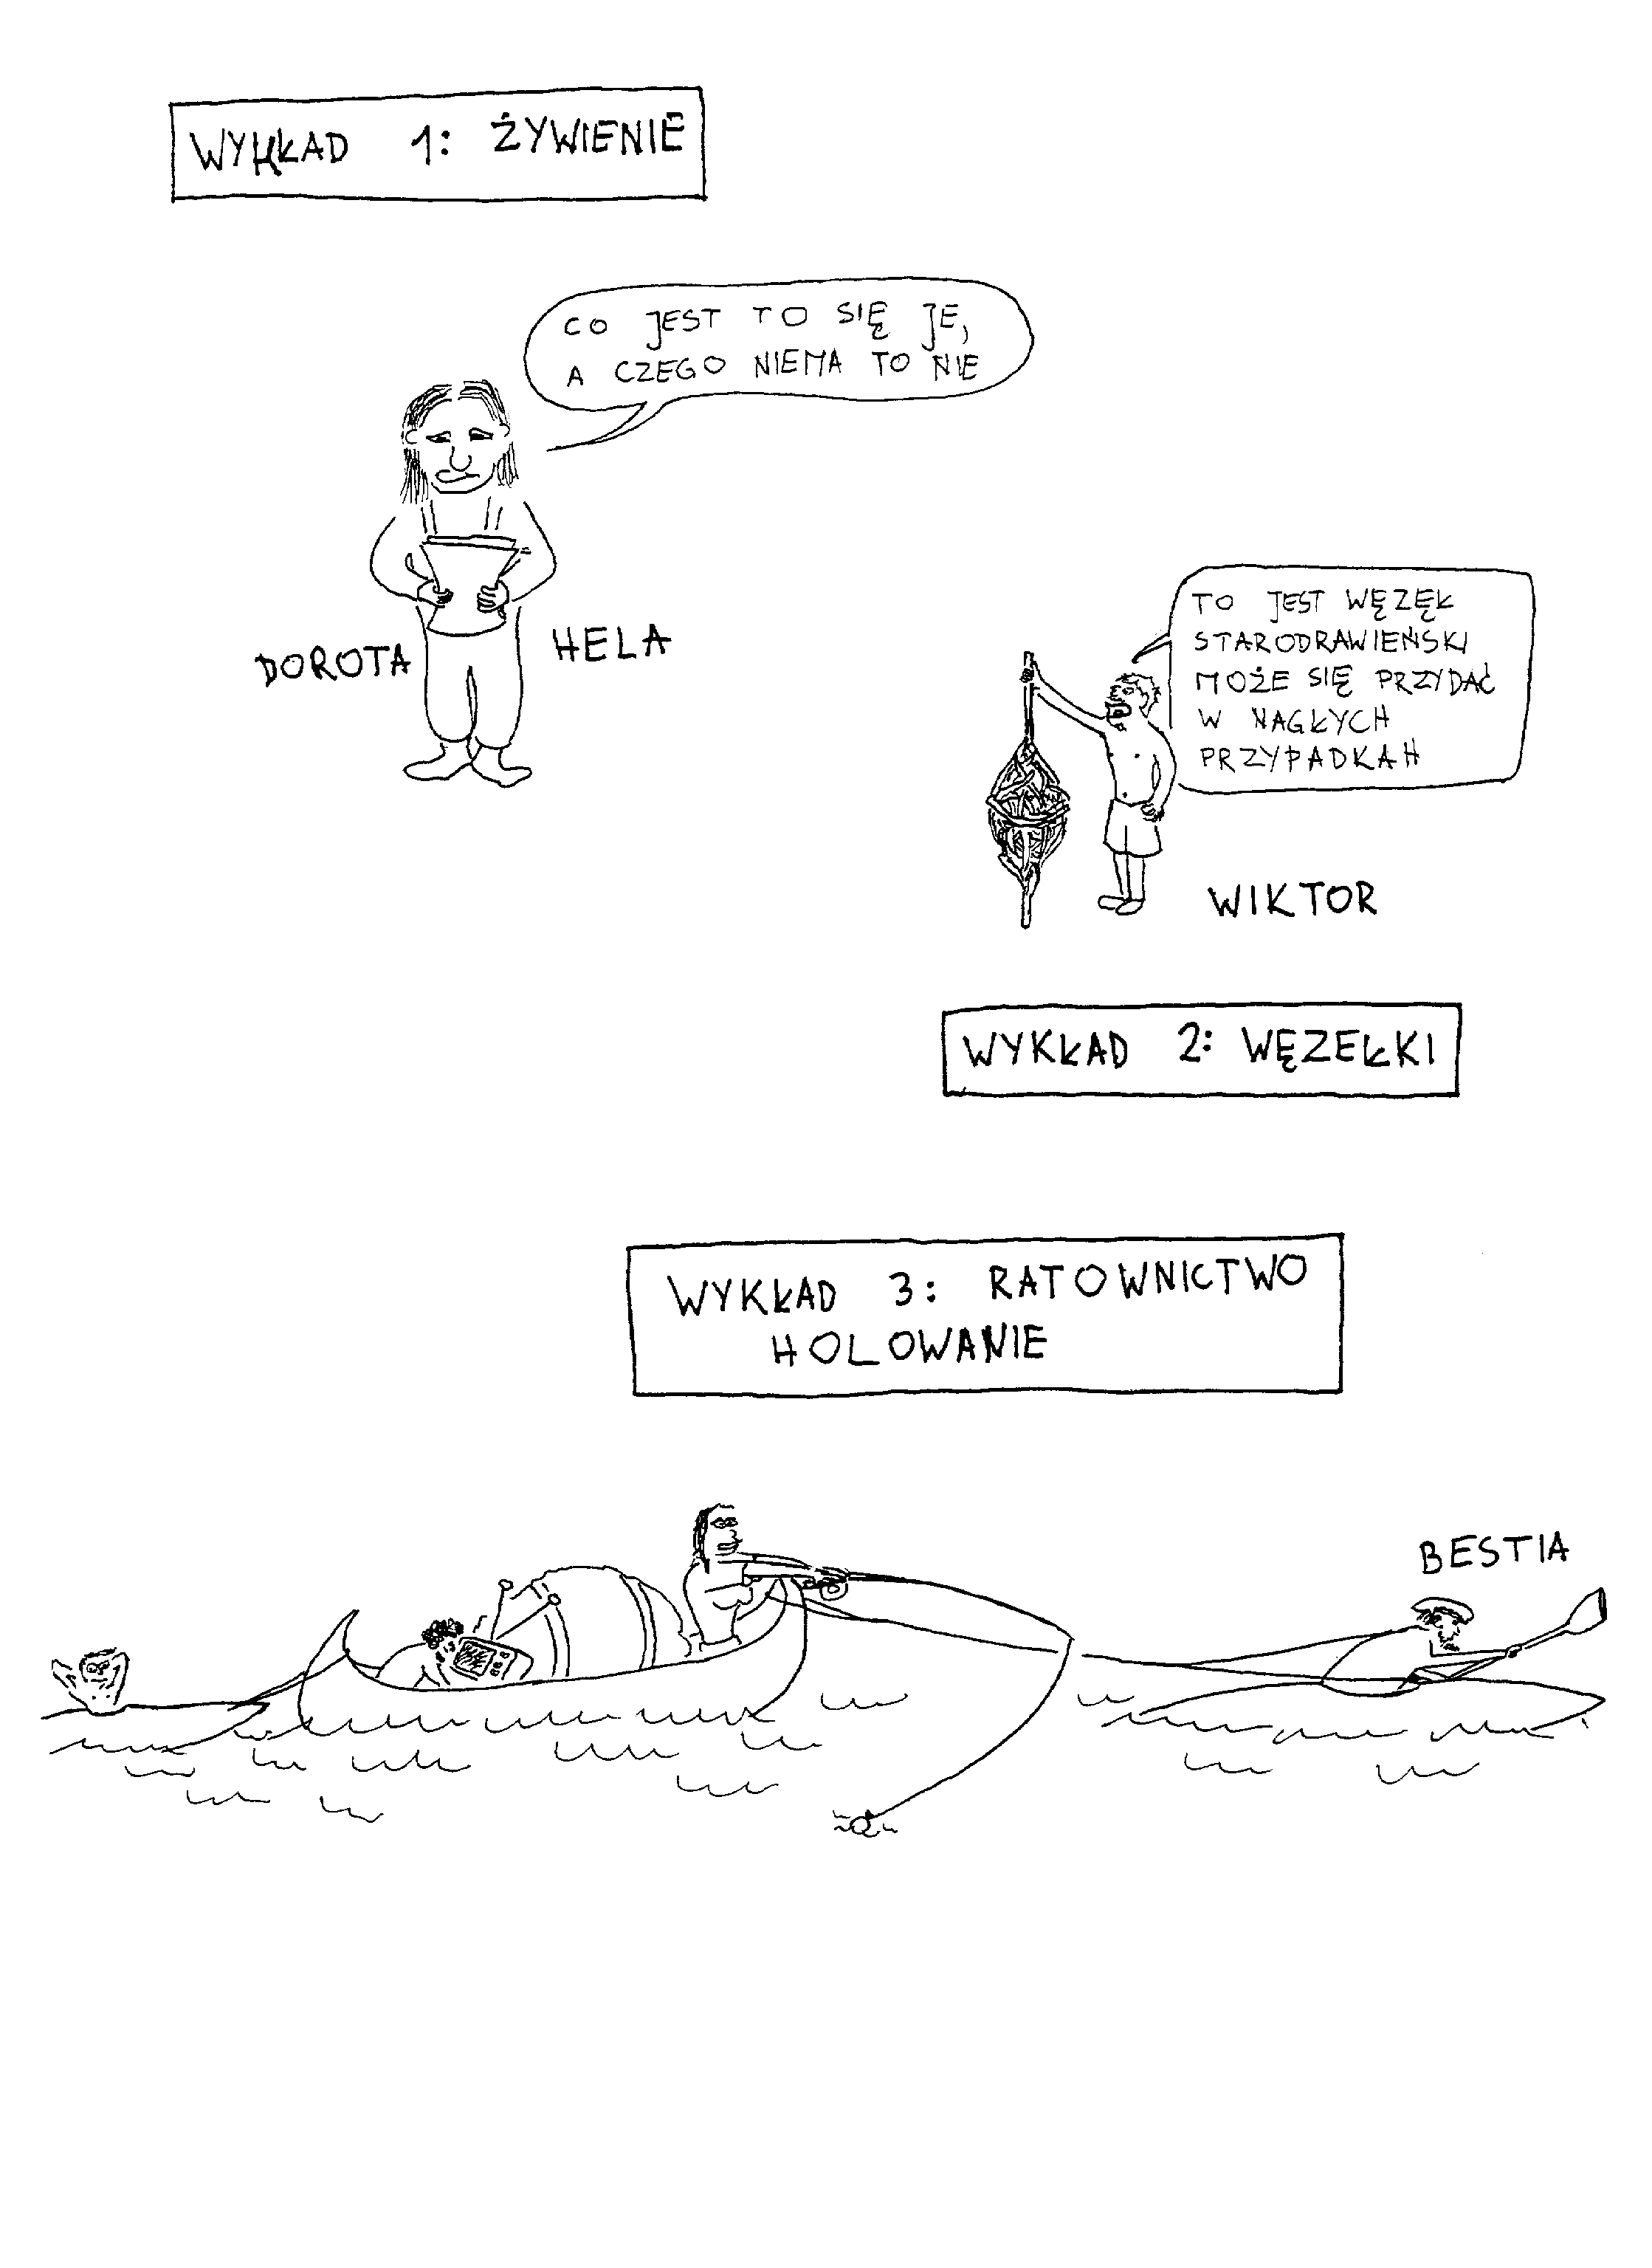 WYKŁAD 1: ŻYWIENIE
CO JEST TO SIĘ JE,
A CZEGO NIEMA TO NIE
DOROTA
HELA
TO JEST WĘZĘŁ
STARODRAWIEŃSKI
MOŻE SIĘ PRZYDAĆ
W NAGŁYCH
PRZYPADKAH
WIKTOR
WYKŁAD 2: WĘZEŁKI
WYKŁAD 3: RATOWNICTWO
HOLOWANIE
BESTIA